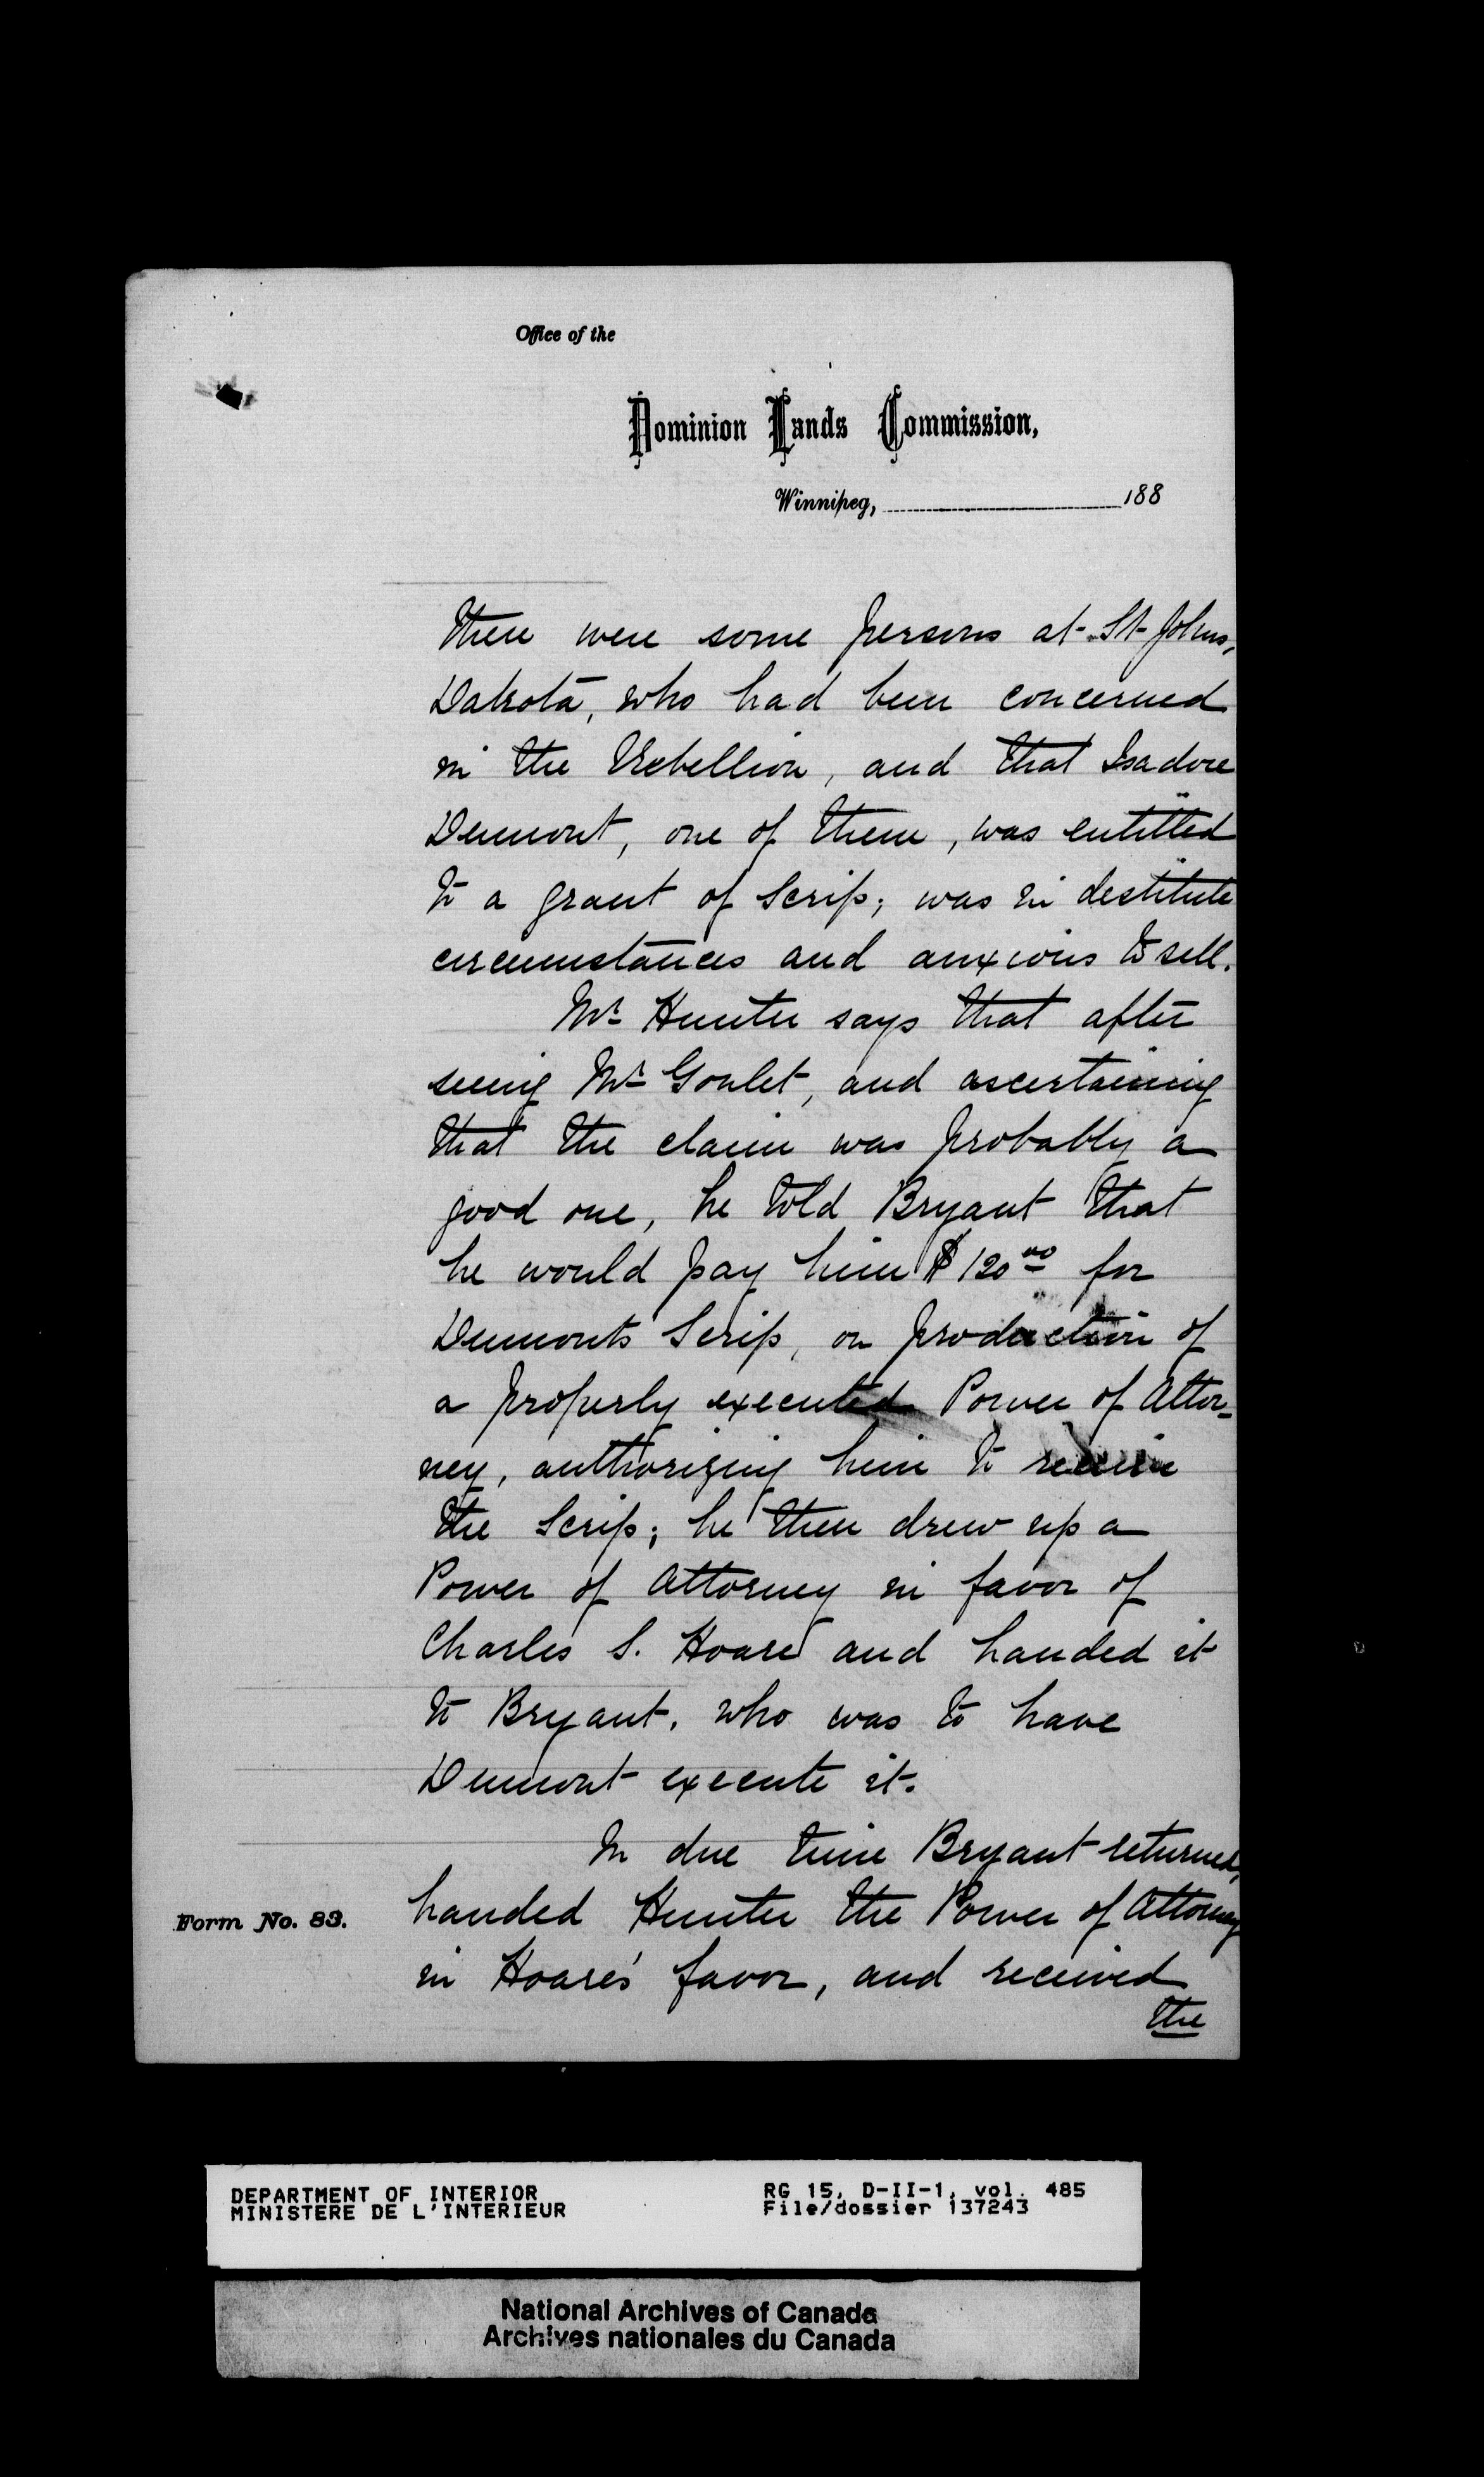 Office of the
Dominion Lands Commission,
Winnipeg, 188
there were some persons at St Johns,
Dakota, who had been concerned
in the Rebellion, and that Isadore
Dumont, one of them, was entitled
to a grant of Scrip; was in destitute
circumstances and anxious to sell.
Mr Hunter says that after
seeing Mr Goulet, and ascertaining
that the claim was probably a
good one, he told Bryant that
he would pay him $120.00 for
Dumonts Scrip, on production of
a properly executed Power of Attor-
ney, authorizing him to receive
the Scrip; he then drew up a
Power of Attorney in favor of
Charles S. Hoare and handed it
to Bryant, who was to have
Dumont execute it.
In due time Bryant returned,
handed Hunter the Power of Attorney
Form No. 83.
in Hoare's favor, and received
the
DEPARTMENT OF INTERIOR
MINISTERE DE L'INTERIEUR
RG 15, D-II-1, vol. 485
File/dossier 137243
National Archives of Canada
Archives nationales du Canada